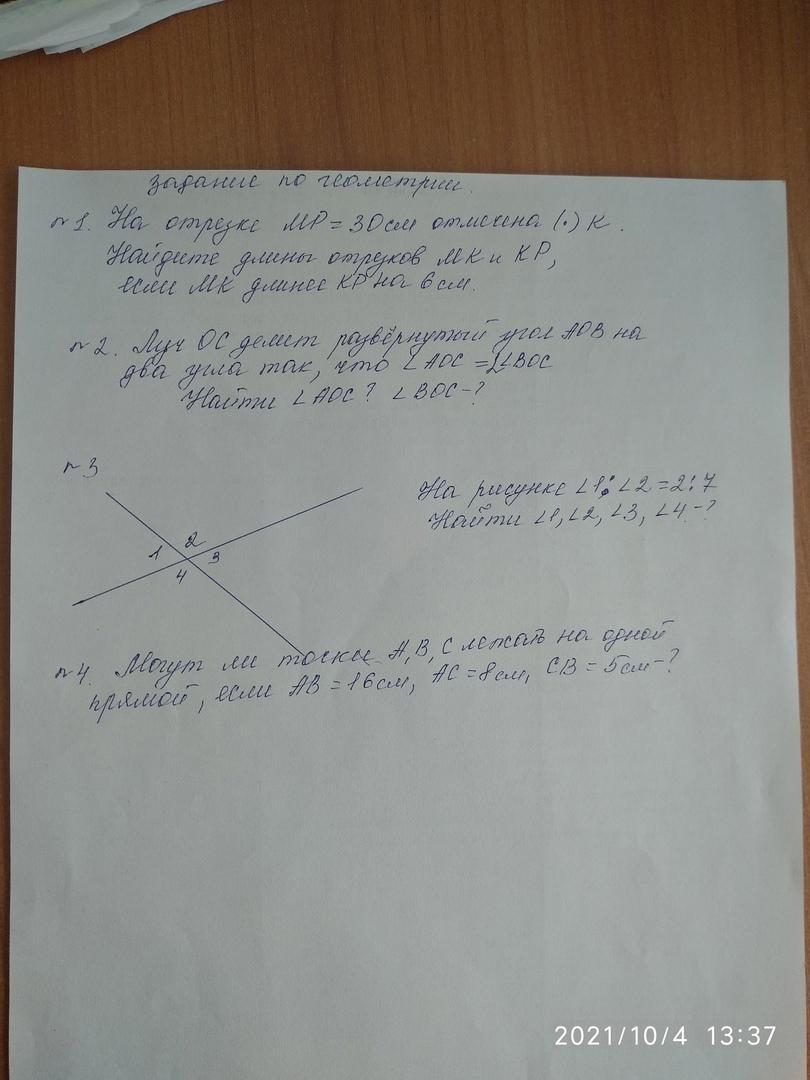 задание по геометрии.
№1. На отрезке MP = 30 см отмечена (•) K.
Найдите длины отрезков MK и KP,
если MK длинее KP на 6 см.
№2. Луч OC делит развёрнутый угол AOB на
два угла так, что ∠AOC = 2∠BOC
Найти ∠AOC? ∠BOC-?
№3
На рисунке ∠1:∠2 = 2:7
Найти ∠1, ∠2, ∠3, ∠4-?
1 2 3 4
№4. Могут ли точки A, B, C лежать на одной
прямой, если AB = 16 см, AC = 8 см, CB = 5 см-?
2021/10/4 13:37